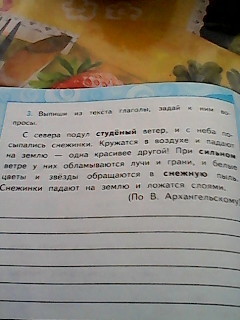 2. Выпиши из текста глаголы, задай к ним во-
просы.
С севера подул студёный ветер, и с неба по-
сыпались снежинки. Кружатся в воздухе и падают
на землю — одна красивее другой! При сильном
ветре у них обламываются лучи и грани, и белые
цветы и звёзды обращаются в снежную пыль.
Снежинки падают на землю и ложатся слоями.
(По В. Архангельскому)